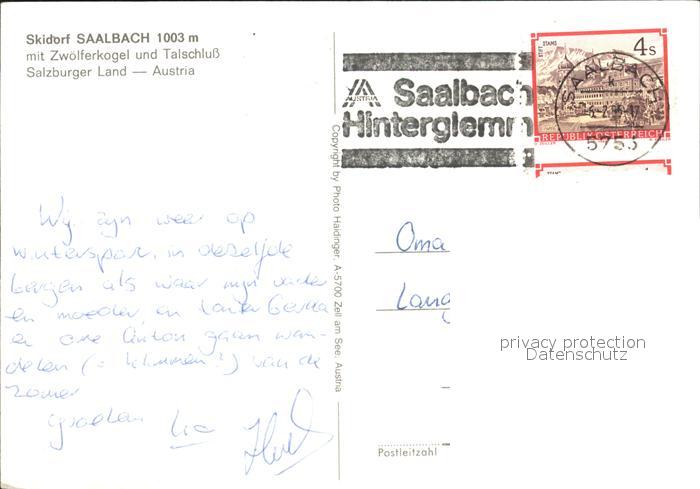 Skidorf SAALBACH 1003 m
mit Zwölferkogel und Talschluß
Salzburger Land — Austria
AUSTRIA
Saalbach
Hinterglemm
STIFT STAMS
4 S
REPUBLIK ÖSTERREICH
SAALBACH
5753
STAMS
Copyright by Photo Haidinger, A-5700 Zell am See, Austria
Wij zijn weer op
wintersport, in dezelfde
bergen als waar mijn vader
en moeder, en tante
en ome Anton gaan wan-
delen (= klimmen?) van de
zomer
groeten
Oma
Lang
privacy protection
Datenschutz
Postleitzahl